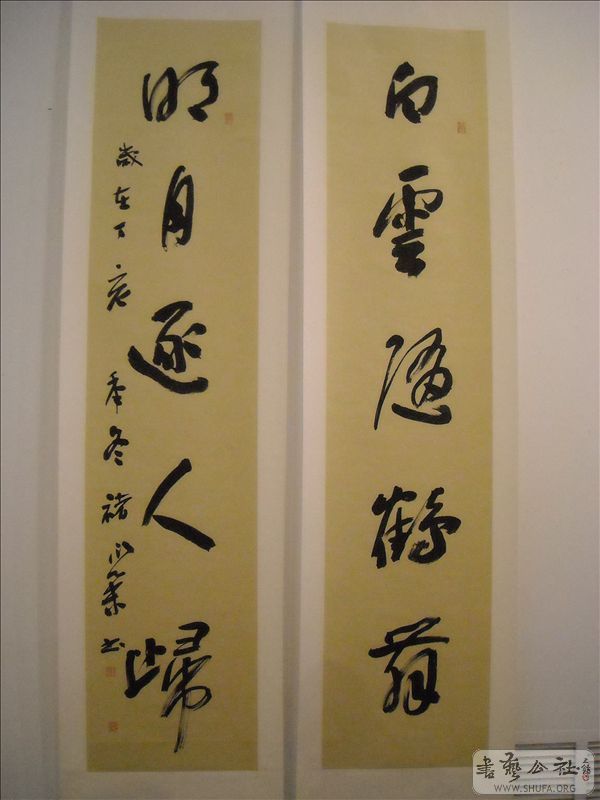 白雲隨鶴舞
明月逐人歸
歲在丁亥季冬褚
書
書藝公社
WWW.SHUFA.ORG